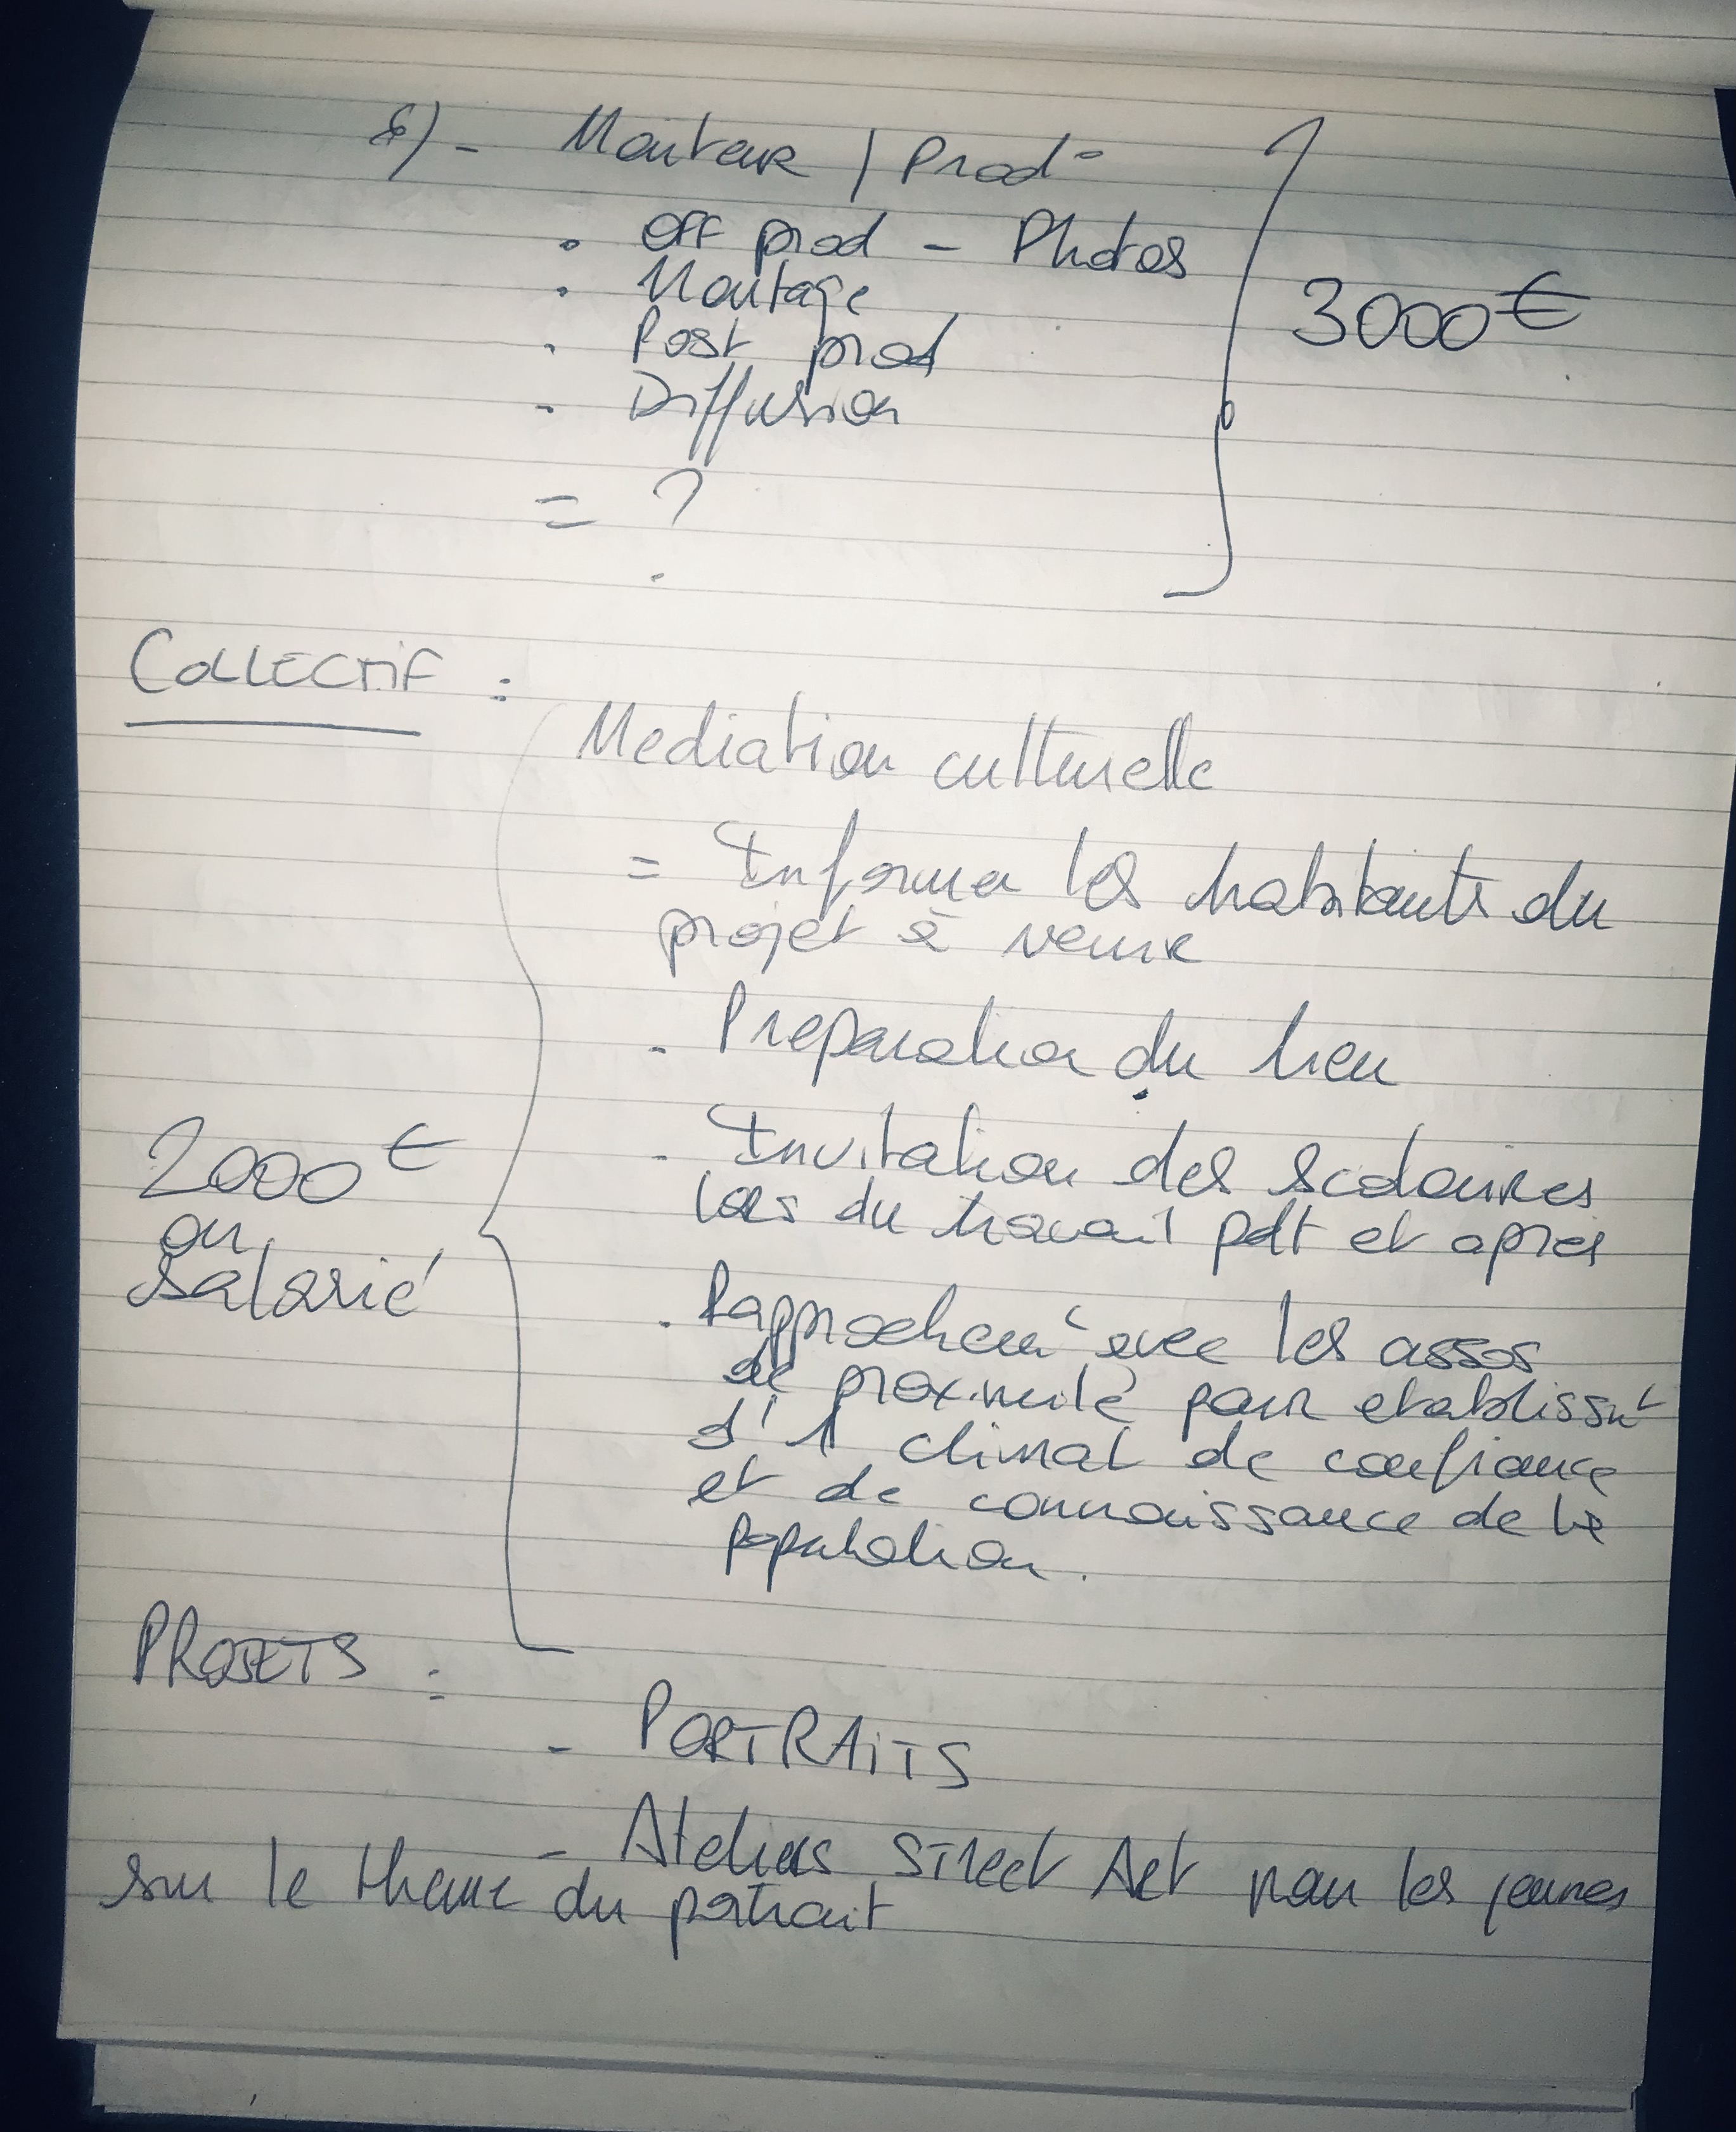 - Monteur / Prod°
• Off prod - Photos 3000€
• Montage
• Post prod
- Diffusion
= ?
COLLECTIF :
Mediation culturelle
= Informer les habitants du
projet à venir
- Preparation du lieu
- Invitation des scolaires
lors du travail pdt et après
2000€
ou
salarié
. Rapprochemt avec les assos
de proximité pour etablissmt
d'1 climat de confiance
et de connaissance de la
population.
PROJETS :
- PORTRAITS
- Ateliers Street Art pour les jeunes
sur le theme du portrait